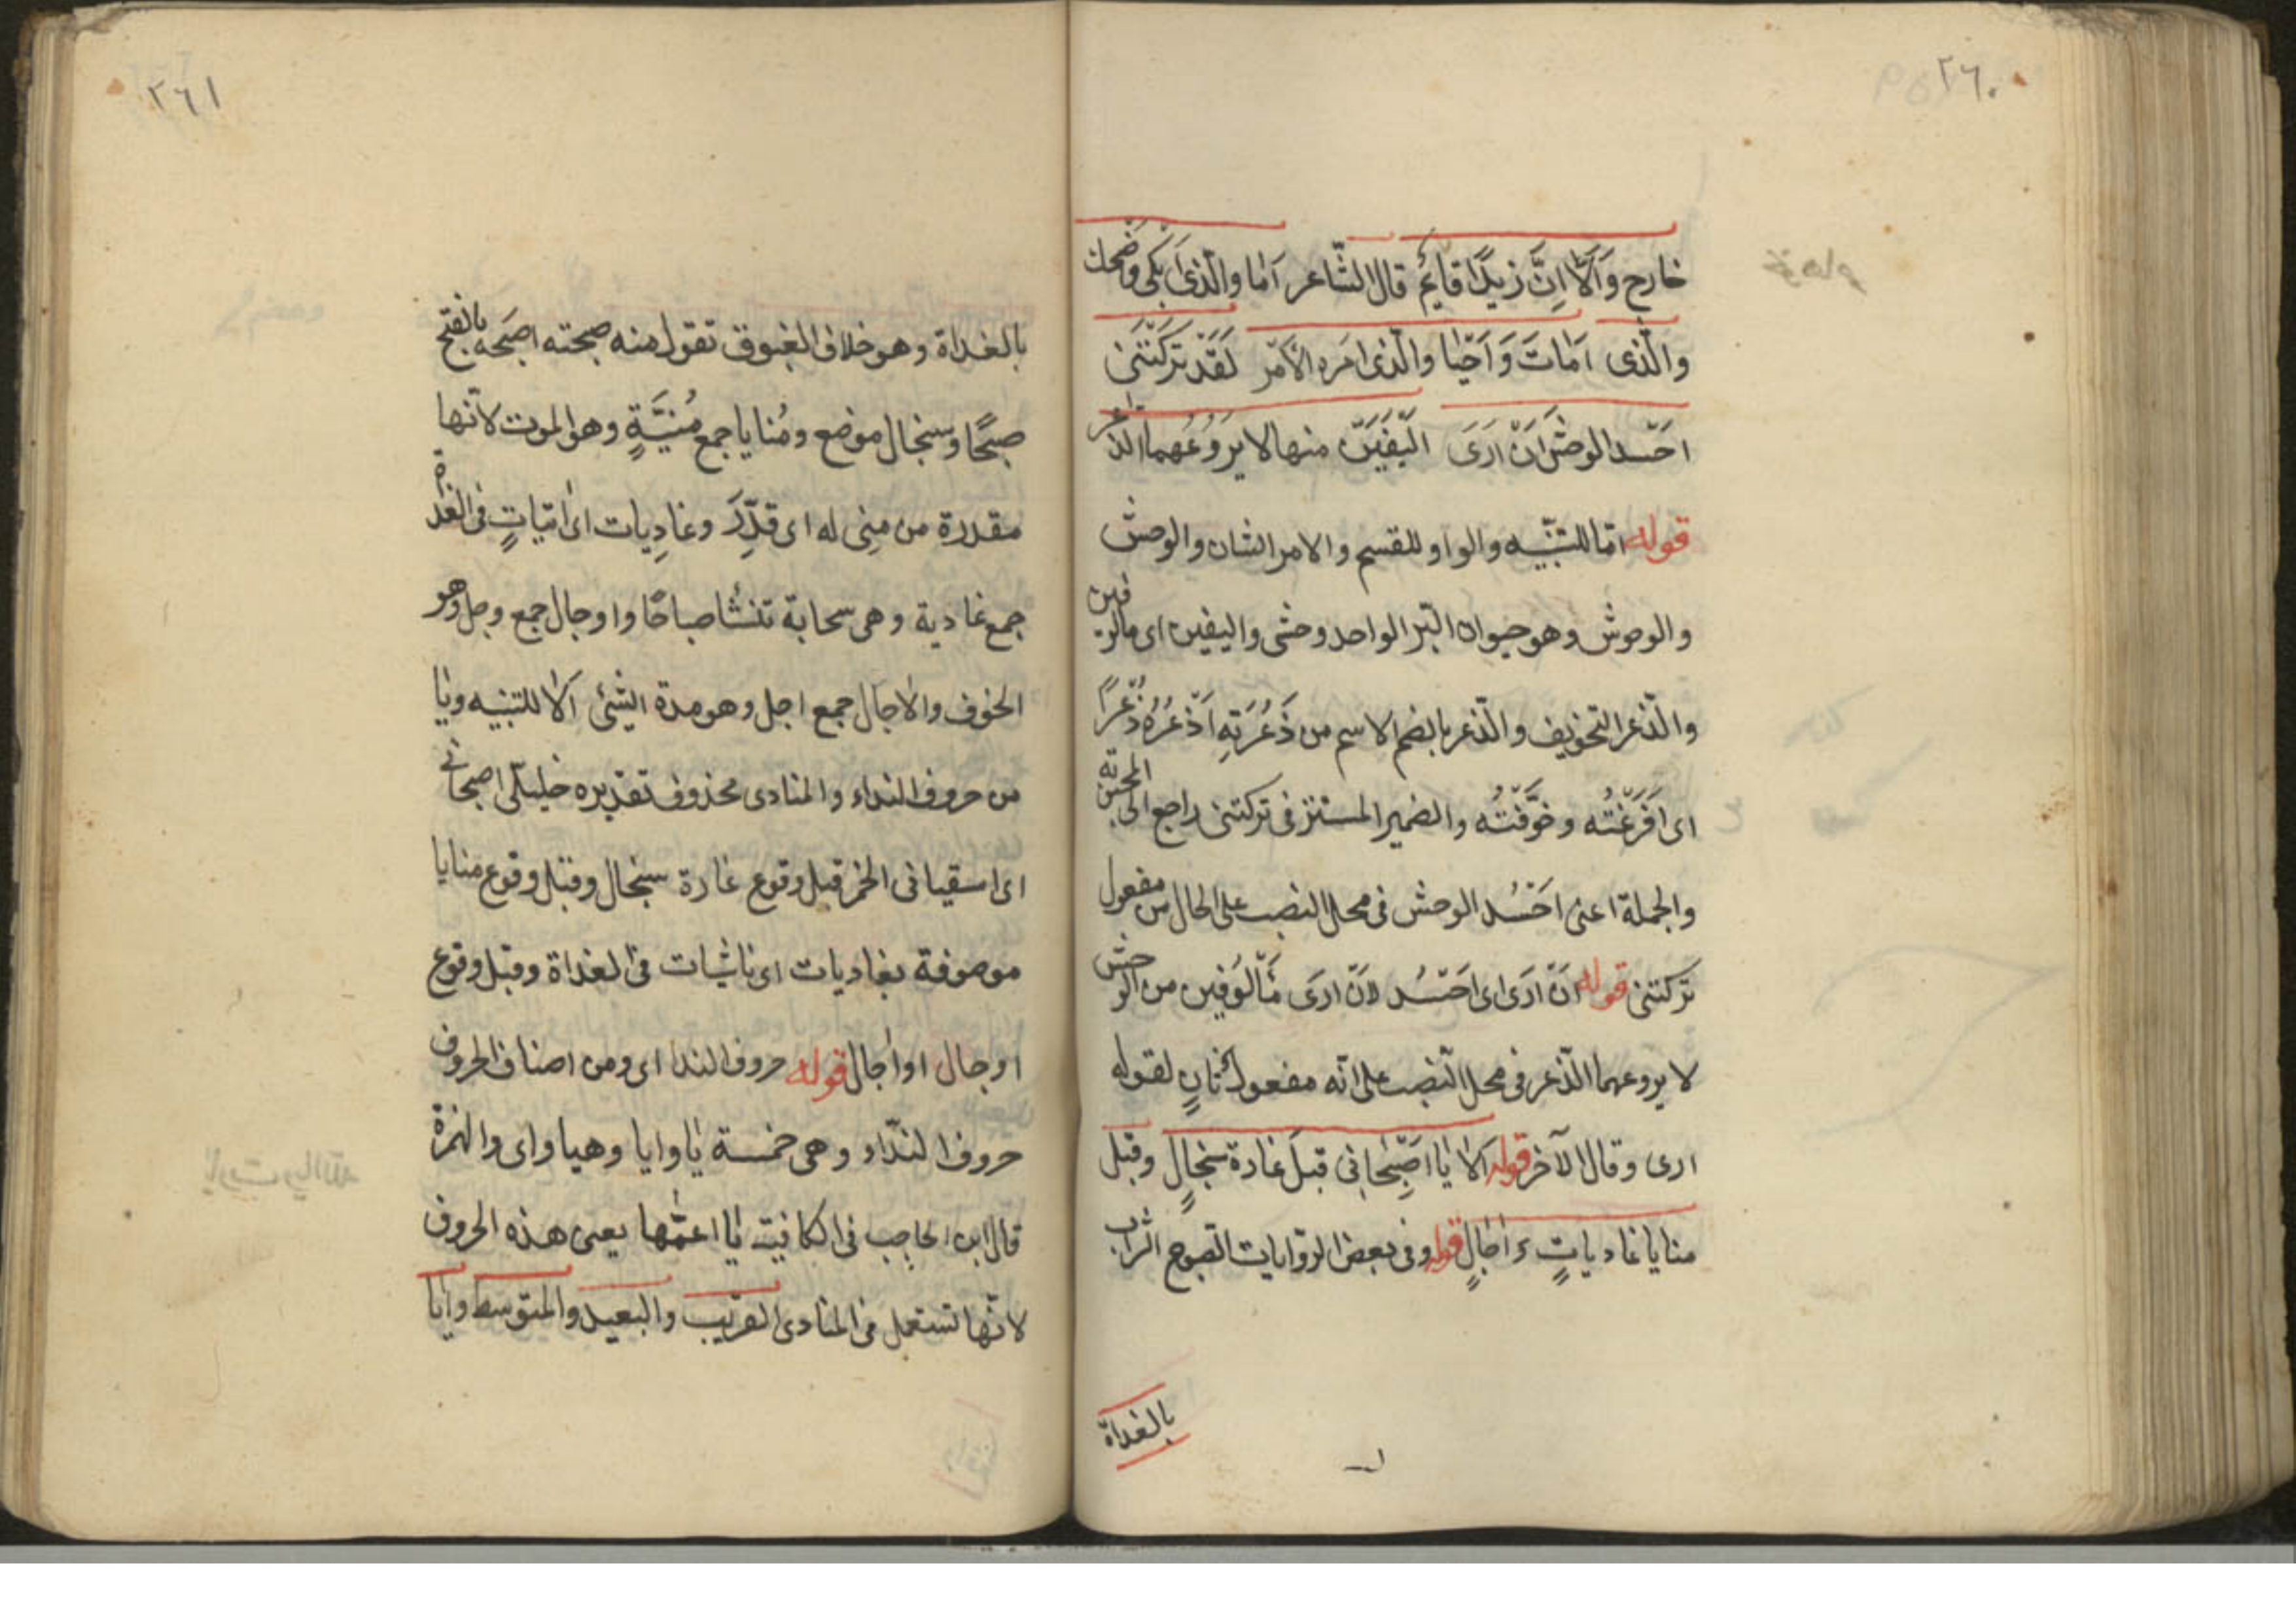 ٢٦٠
خارج وَاَلَا اِنَّ زَيْدًا قائِمٌ قال الشّاعر اَمَا والَّذى اَبْكى وَضْحك
والَّذى اَمَاتَ وَاَحْيا والّذى امره الاَمْر لَقَدْ تَركَتْنى
احَسد الوحش اَنْ اَرَى اَلِيفَيْن منها لا يَرُوعُهما الذعر
قوله اما للتّنبيه والواو للقسم والامر الشان والوحش
والوحوش وهو حيوان البرّ الواحد وحشى واليفين اى مالوفين
والذّعر التخويف والذّعر بالضم الاسم من ذَعَرْتهِ اَذْعَرُهُ ذُعْرًا
اى اَفْزَعْتُه وخَوَّفْتُه والضمير المستتر فى تركتنى راجع الى المحبوبة
والجملة اعنى احَسُد الوحش فى محل النصب على الحال من مفعول
تركتنى قوله اَنْ اَرَى اى احَسُد لاَنْ ارَى مَأْلُوفين من الوحش
لا يروعهما الذّعر فى محل النّصب على انّه مفعول ثانٍ لقوله
ارى وقال الآخر قوله اَلا يٰا اصْبَحانى قبلَ غارة سنجالٍ وقبل
منايا غادياتٍ واٰجالٍ قوله وفى بعض الروايات الصبوح الشراب
بالغداة
٢٦١
بالغداة وهو خلاف الغبوق تقول منه صبحته اصبَحه بالفتح
صبحًا وسنجال موضع ومُنايا جمع مُنيَّةٍ وهو الموت لانّها
مقدرة من مِنى له اى قدّر وغادِيات اى اٰتياتٍ فى الغداة
جمع غادية وهى سحابة تنشأ صباحًا واوجال جمع وجل وهو
الخوف والاجال جمع اجل وهو مدة الشئ اَلا للتنبيه ويا
من حروف النداء والمنادى محذوف تقديره خليلىّ اصبحانى
اى اسقيانى الخمر قبل وقوع غارة سنجال وقبل وقوع منايا
موصوفة بغاديات اى ناشيات فى الغداة وقبل وقوع
اوجال او اٰجال قوله حروف الندا اى ومن اصناف الحروف
حروف النّداء وهى خمسة يٰا وايا وهيا واى والهمزة
قال ابن الحاجب فى الكافية يٰا اعمّها يعنى هذه الحروف
لانّها تستعمل فى المنادى القريب والبعيد والمتوسط وايا